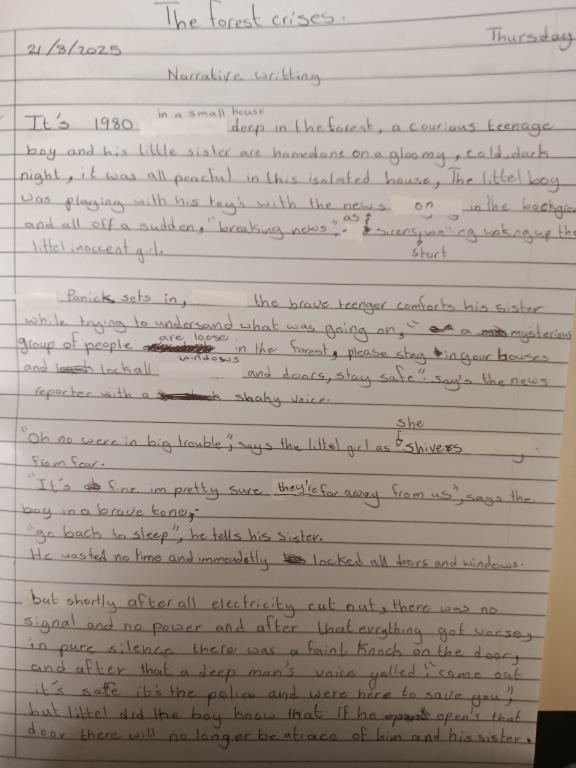 The forest crises.
Thursday
21/8/2025
Narrative writting
It's 1980 in a small house deep in the forest, a courious teenage
boy and his little sister are homealone on a gloomy, cold, dark
night, it was all peacful in this isolated house, The littel boy
was playing with his toy's with the news on in the backgrou
and all off a sudden, "breaking news". as sirens start waking up the
littel inoccent girl.
Panick sets in, the brave teenger comforts his sister
while trying to undersand what was going on, " a mysterious
group of people are loose in the forest, please stay in your houses
and lock all windows and doors, stay safe". say's the news
reporter with a shaky voice.
"Oh no were in big trouble", says the littel girl as she shivers
from fear.
"It's fine im pretty sure they're far away from us", says the
boy in a brave tone,
"go back to sleep", he tells his sister.
He wasted no time and immeadetly locked all doors and windows.
but shortly after all electricity cut out, there was no
signal and no power and after that evrything got worse,
in pure silence there was a faint knock on the door,
and after that a deep man's voice yelled "come out
it's safe it's the police and were here to save you",
but littel did the boy know that if he open's that
door there will no longer be a trace of him and his sister.